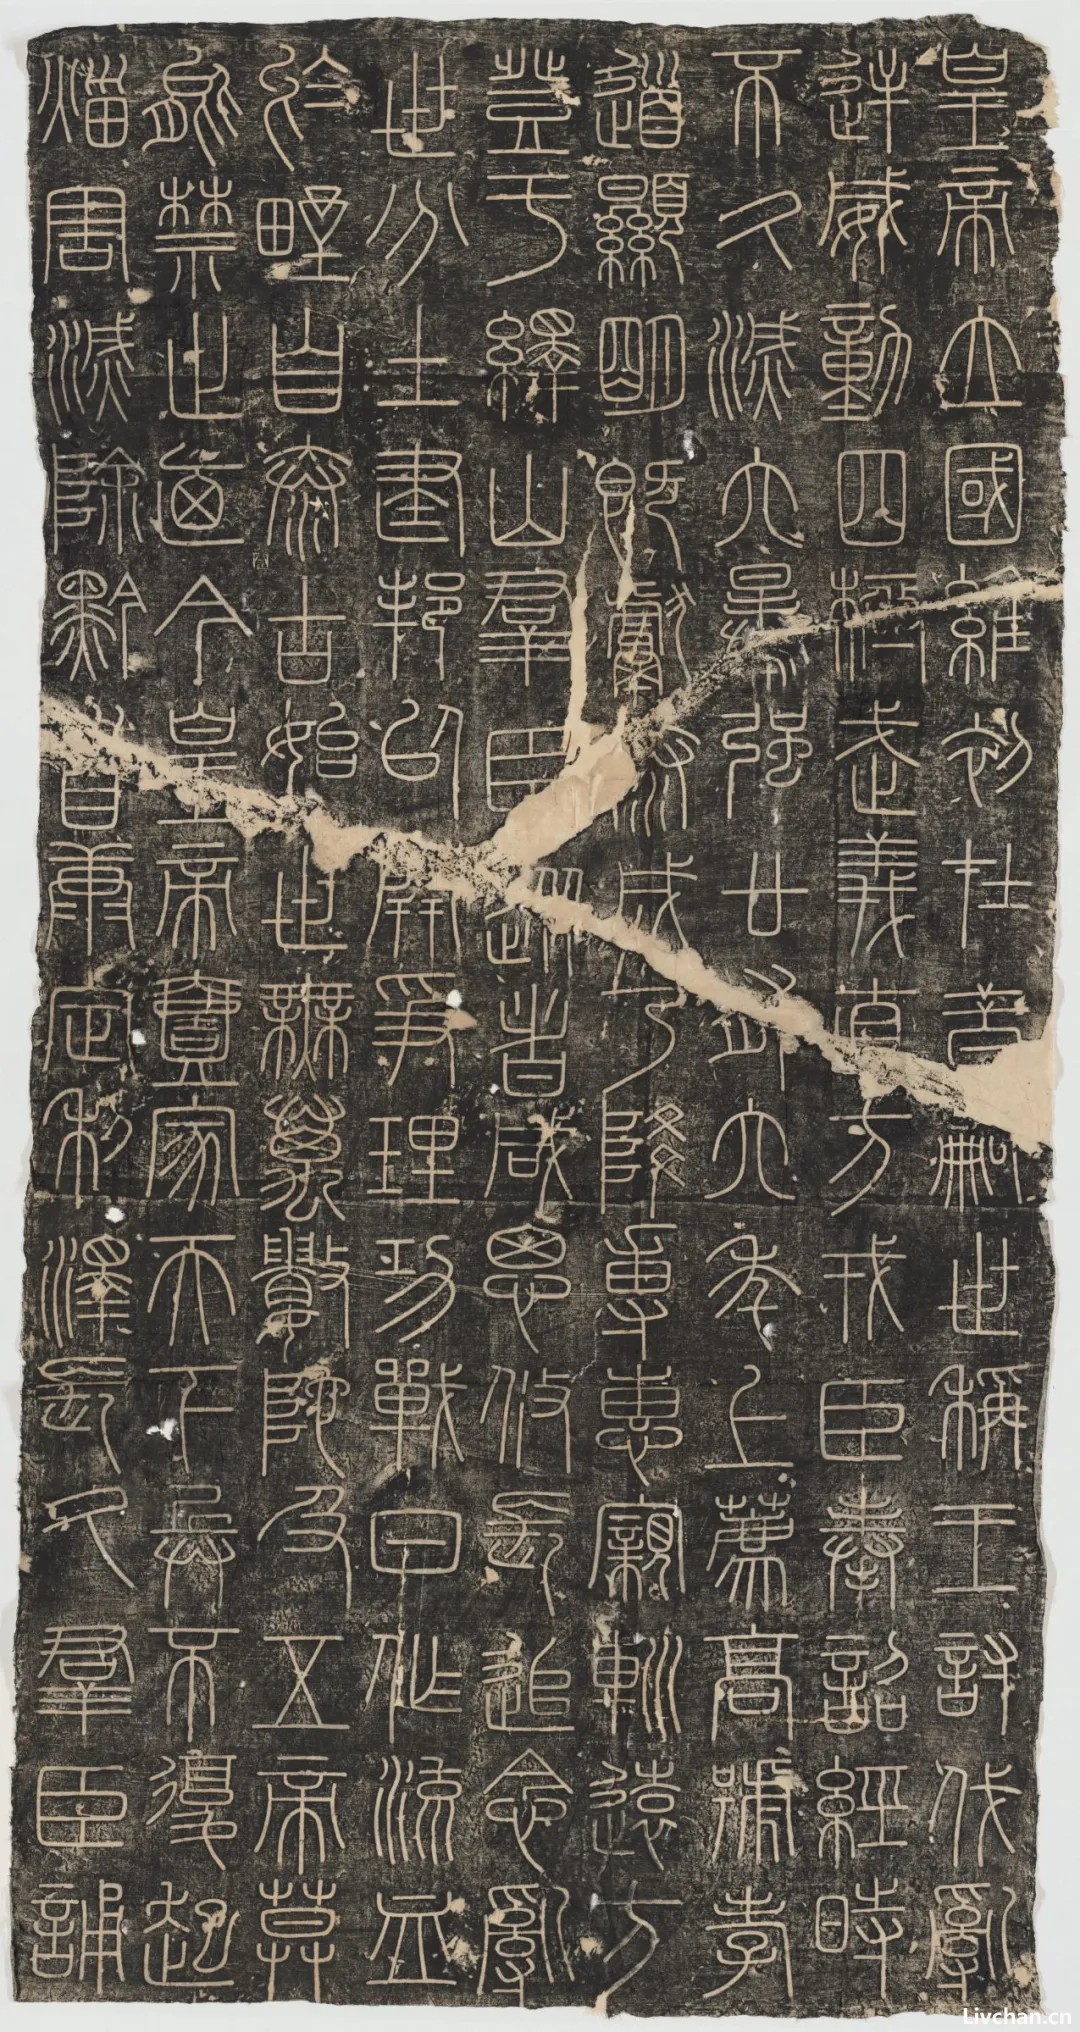 皇帝立國維初在昔嗣世稱王討伐亂
逆威動四極武義直方戎臣奉詔經時
不久滅六暴強廿有六年上薦高號孝
道顯明既獻泰成乃降專惠親巡遠方
登于繹山羣臣從者咸思攸長追念亂
世分土建邦以開爭理功戰日作流血
於野自泰古始世無萬數陀及五帝莫
能禁止廼今皇帝壹家天下兵不復起
災害滅除黔首康定利澤長久羣臣誦
Livchan.cn